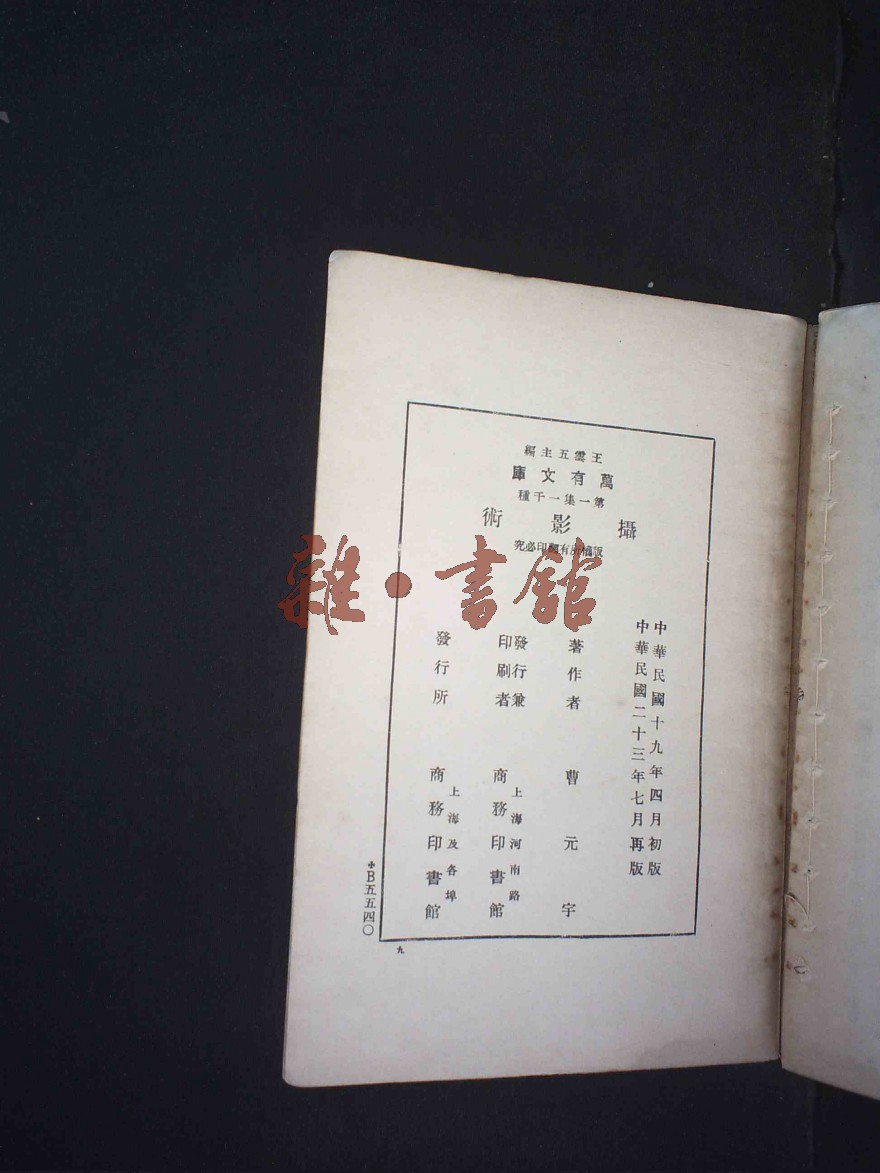 王雲五主編
萬有文庫
第一集一千種
攝影術
版權所有翻印必究
中華民國十九年四月初版
中華民國二十三年七月再版
著作者 曹元宇
發行兼
印刷者
上海河南路
商務印書館
發行所
上海及各埠
商務印書館
B五五四〇
九
雜·書館